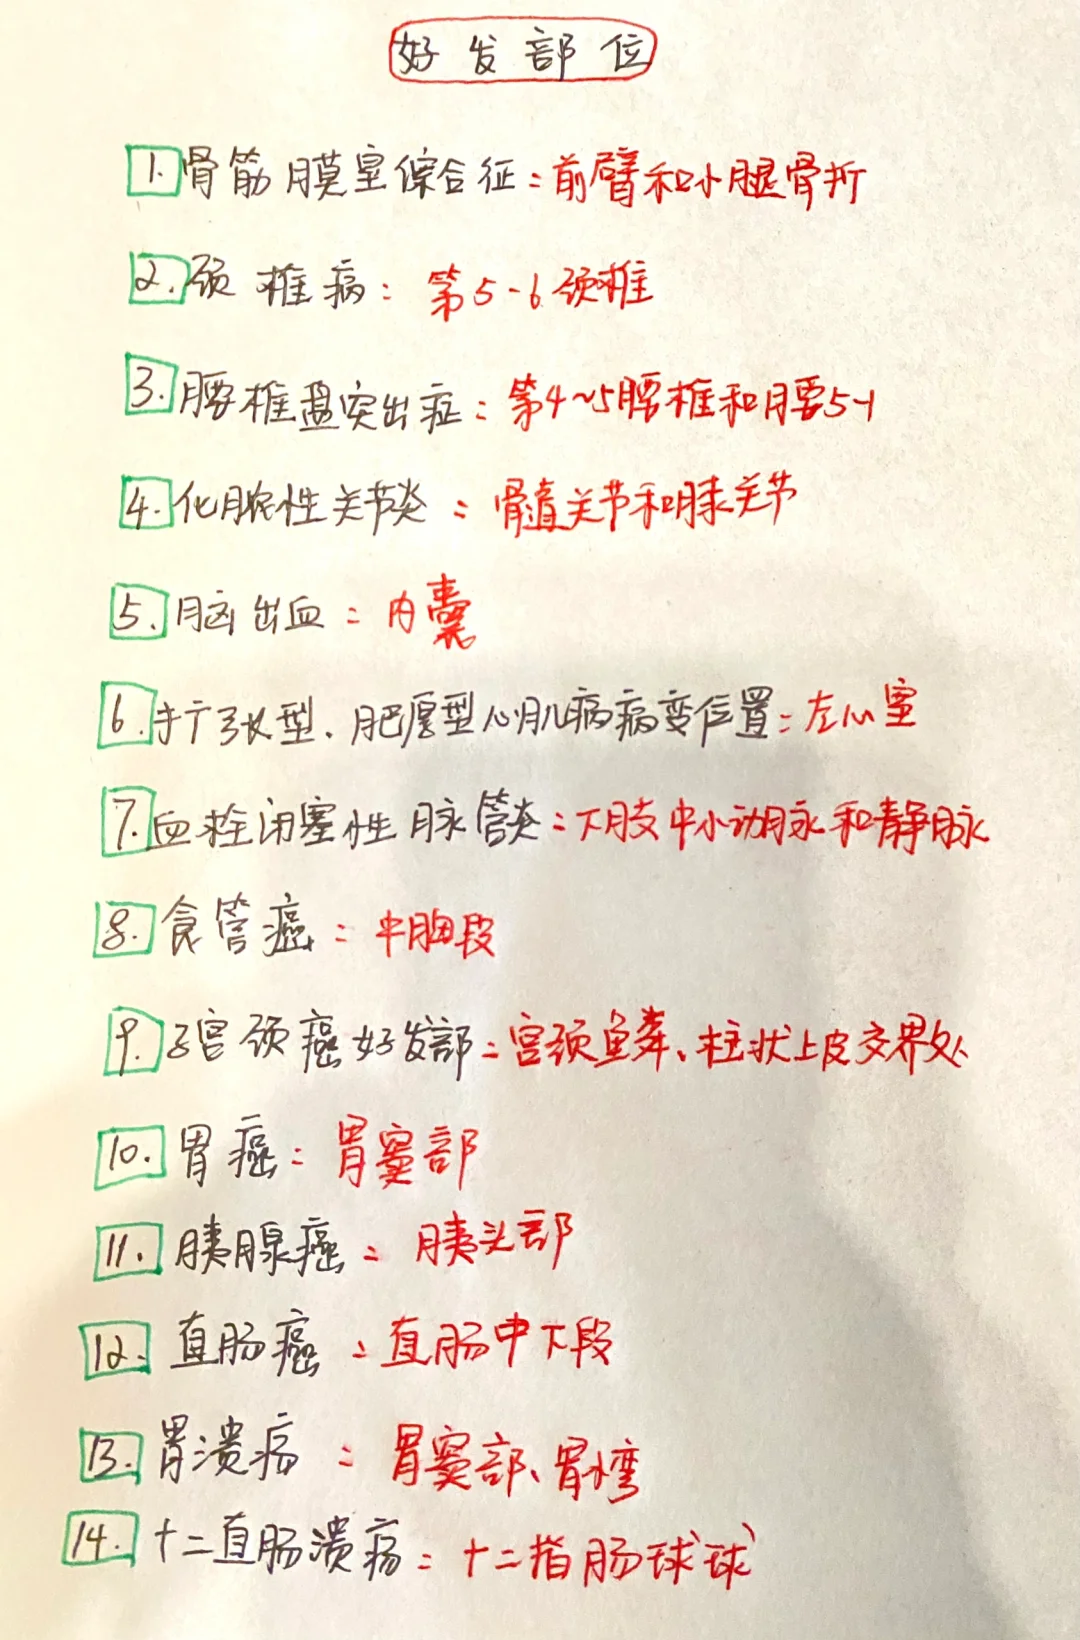 好发部位
1.骨筋膜室综合征:前臂和小腿骨折
2.颈椎病:第5-6颈椎
3.腰椎盘突出症:第4~5腰椎和腰5-1
4.化脓性关节炎:髋关节和膝关节
5.脑出血:内囊
6.扩张型、肥厚型心肌病病变位置:左心室
7.血栓闭塞性脉管炎:下肢中小动脉和静脉
8.食管癌:中胸段
9.子宫颈癌好发部:宫颈鳞、柱状上皮交界处
10.胃癌:胃窦部
11.胰腺癌:胰头部
12.直肠癌:直肠中下段
13.胃溃疡:胃窦部、胃小弯
14.十二直肠溃疡:十二指肠球球